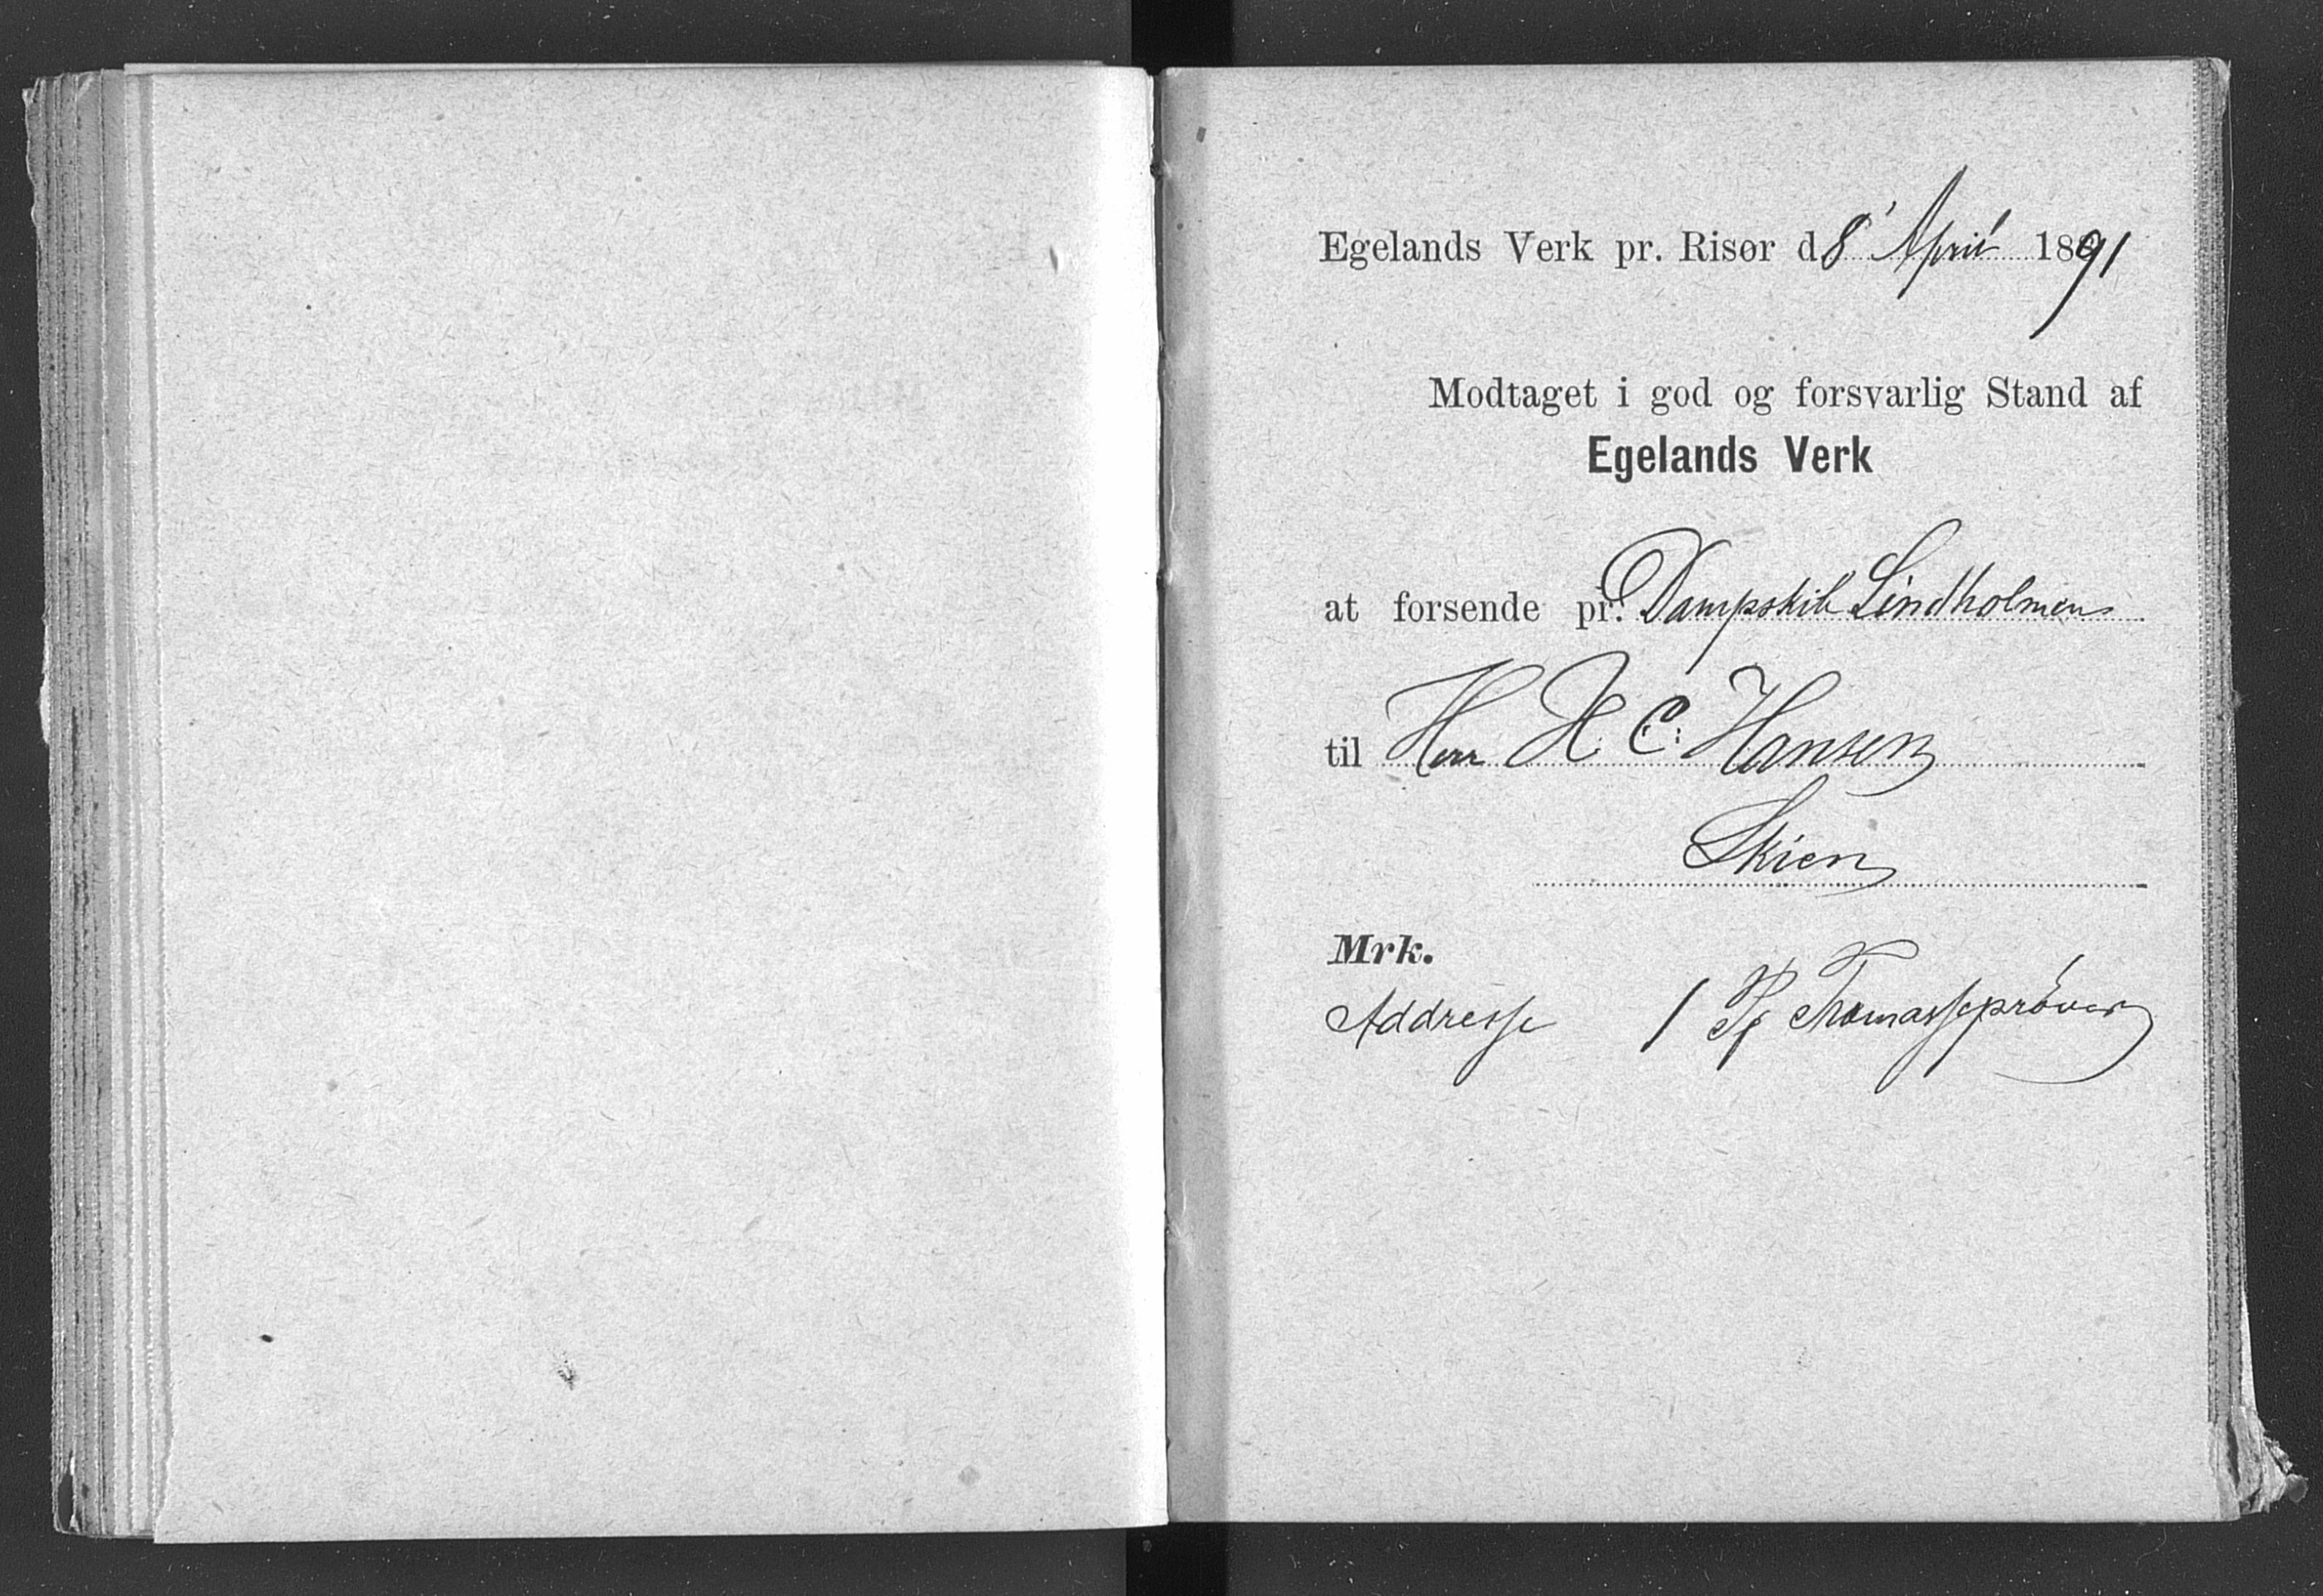 Egelands Verk pr. Risør d. 8' April 1891
Modtaget i god og forsvarlig Stand af
Egelands Verk
at forsende pr. Dampskib Lindholmen
til Herr H. C. Hansen
Skien
Mrk.
Addresse 1